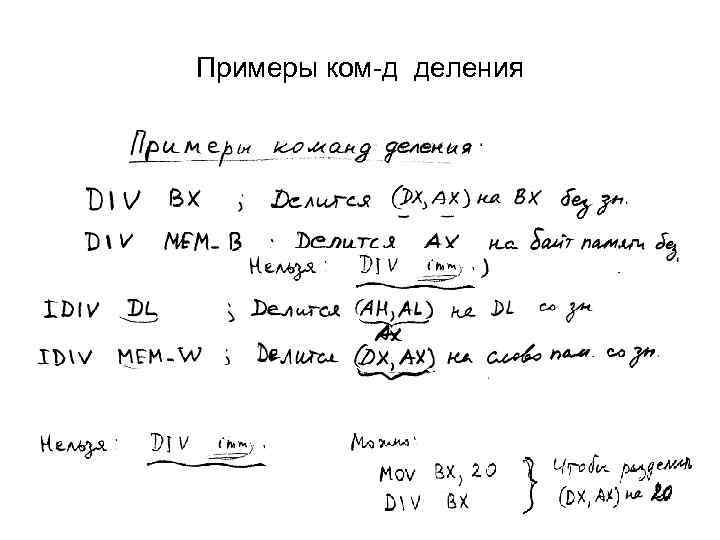 Примеры ком-д деления
Примеры команд деления:
DIV BX ; Делится (DX, AX) на BX без зн.
DIV MEM-B . Делится AX на байт памяти без
Нельзя: DIV imm. )
IDIV DL ; Делится (AH, AL) на DL со зн
AX
IDIV MEM-W ; Делится (DX, AX) на слово пам. со зн.
Нельзя: DIV imm. Можно:
MOV BX, 20 } Чтобы разделить
DIV BX (DX, AX) на 20